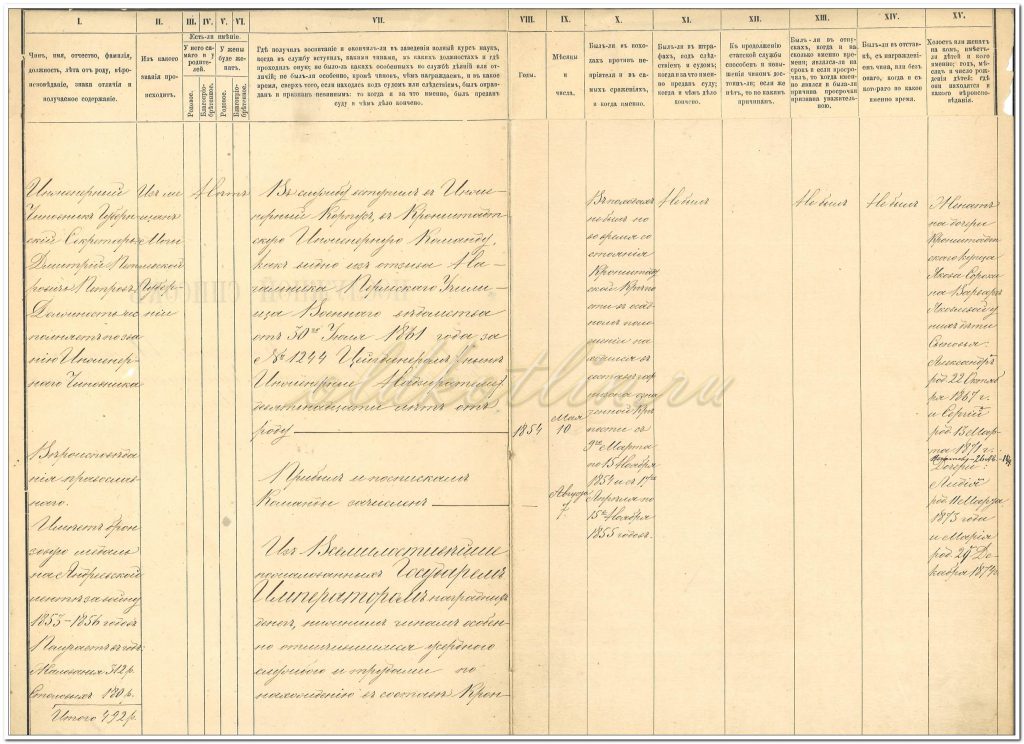 I.
Чинъ, имя, отчество, фамилія,
должность, лѣта отъ роду, вѣро-
исповѣданіе, знаки отличія и
получаемое содержаніе.
II.
Изъ какого
званія про-
исходитъ.
III.
IV.
V.
VI.
Есть-ли имѣніе.
У него са-
маго и у
родите-
лей.
У жены
буде же-
натъ.
Родовое.
Благопріо-
брѣтенное.
Родовое.
Благопріо-
брѣтенное.
VII.
Гдѣ получилъ воспитаніе и окончилъ-ли въ заведеніи полный курсъ наукъ,
когда въ службу вступилъ, какими чинами, въ какихъ должностяхъ и гдѣ
проходилъ оную; не было-ли какихъ особенныхъ по службѣ дѣяній или от-
личій; не былъ-ли особенно, кромѣ чиновъ, чѣмъ награждаемъ, и въ какое
время, сверхъ того, если находясь подъ судомъ или слѣдствіемъ, былъ оправ-
данъ и признанъ невиннымъ: то когда и за что именно, былъ преданъ
суду и чѣмъ дѣло кончено.
VIII.
Годы.
IX.
Мѣсяцы
и
числа.
X.
Былъ-ли въ похо-
дахъ противъ не-
пріятеля и въ са-
мыхъ сраженіяхъ,
и когда именно.
XI.
Былъ-ли въ штра-
фахъ, подъ слѣд-
ствіемъ и судомъ;
когда и за что имен-
но преданъ суду;
когда и чѣмъ дѣло
кончено.
XII.
Къ продолженію
статской службы
способенъ и повы-
шенія чиномъ дос-
тоинъ-ли; если же
нѣтъ, то по какимъ
причинамъ.
XIII.
Былъ-ли въ отпу-
скахъ, когда и на
сколько именно вре-
мени; являлся-ли на
срокъ и если про-
срочилъ, то когда имен-
но явился и была-ли
причина просрочки
признана уважитель-
ною.
XIV.
Былъ-ли въ отстав-
кѣ, съ награжденіе-
емъ чина, или безъ
онаго, когда и съ
котораго по какое
именно время.
XV.
Холостъ или женатъ
на комъ, имѣетъ-
ли дѣтей и кого
именно; годъ, мѣс-
яцъ и число рож-
денія дѣтей; гдѣ
они находятся и
какого вѣроиспо-
вѣданія.
Инженерный
Чиновникъ Губерн-
скій Секретарь
Дмитрій Пет-
ровичъ Петровъ
Должность ис-
полняетъ по зва-
нію Инженер-
наго Чиновника
Вѣроисповѣда-
нія православ-
наго.
Имѣетъ брон-
зовую медаль
на Андреевской
лентѣ за войну
1853–1856 годовъ
Получаетъ въ годъ:
Жалованья 312 р.
Столовыхъ 180 р.
Итого 492 р.
Изъ мѣ
щанъ
Моги
левской
Губер-
ніи
Нѣтъ
Въ службу вступилъ въ Инже-
нерный Корпусъ, въ Кронштадт-
скую Инженерную Команду,
какъ видно изъ отзыва На-
чальника Пермскаго Учили-
ща Военнаго вѣдомства
отъ 30го Іюля 1861 года за
№ 1244 Цейхдинеромъ (нынѣ
Инженерный Надзиратель)
лѣтъ отъ
роду
1854
Мая
10
Прибылъ и по спискамъ
Команды зачисленъ
Августа
7.
Изъ Всемилостивѣйше
пожалованныхъ Государемъ
Императоромъ наградныхъ
денегъ, нижнимъ чинамъ особен-
но отличившимся усердною
службою и трудами по
нахожденію въ составѣ Крон-
Въ походахъ
не былъ но
во время со
стоянія
Кронштадт
ской Крѣпо
сти въ осад-
номъ поло
женіи на
ходился въ
составѣ гар
низона озна
ченной Крѣ
пости съ
9го Марта
по 15 Ноября
1854 и съ
Апрѣля по
15е Ноября
1855 годовъ.
Не былъ
Не былъ
Не былъ
Женатъ
на дочери
Кронштадт
скаго купца
Якова Сороки
на Варварѣ
Яковлевой у
нихъ дѣти
Сыновья:
Александръ
род. 22 Октяб
ря 1867 г.
и Сергѣй
род. 13 Мар-
та 1871 г.
Дочери:
Лидія
род. 11 Марта
1873 года
и Марія
род. 29 Де-
кабря 1874 г.
oldkotlin.ru